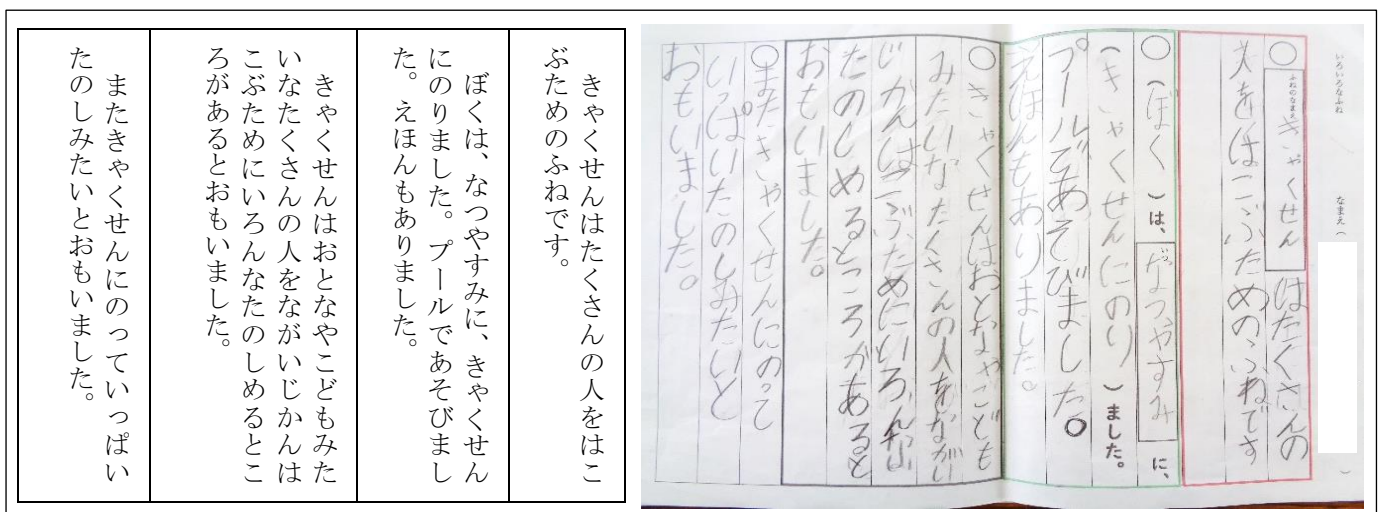 いろいろなふね　なまえ（　）
○ふねのなまえ きゃくせん はたくさんの
人をはこぶためのふねです
○（ぼく）は、いつ なつやすみ に、
（きゃくせんにのり）ました。
プールであそびました。
えほんもありました。
○きゃくせんはおとなやこども
みたいなたくさんの人をながい
じかんはこぶためにいろんな
たのしめるところがあると
おもいました。
○またきゃくせんにのって
いっぱいたのしみたいと
おもいました。
きゃくせんはたくさんの人をはこ
ぶためのふねです。
ぼくは、なつやすみに、きゃくせん
にのりました。プールであそびまし
た。えほんもありました。
きゃくせんはおとなやこどもみた
いなたくさんの人をながいじかんは
こぶためにいろんなたのしめるとこ
ろがあるとおもいました。
またきゃくせんにのっていっぱい
たのしみたいとおもいました。